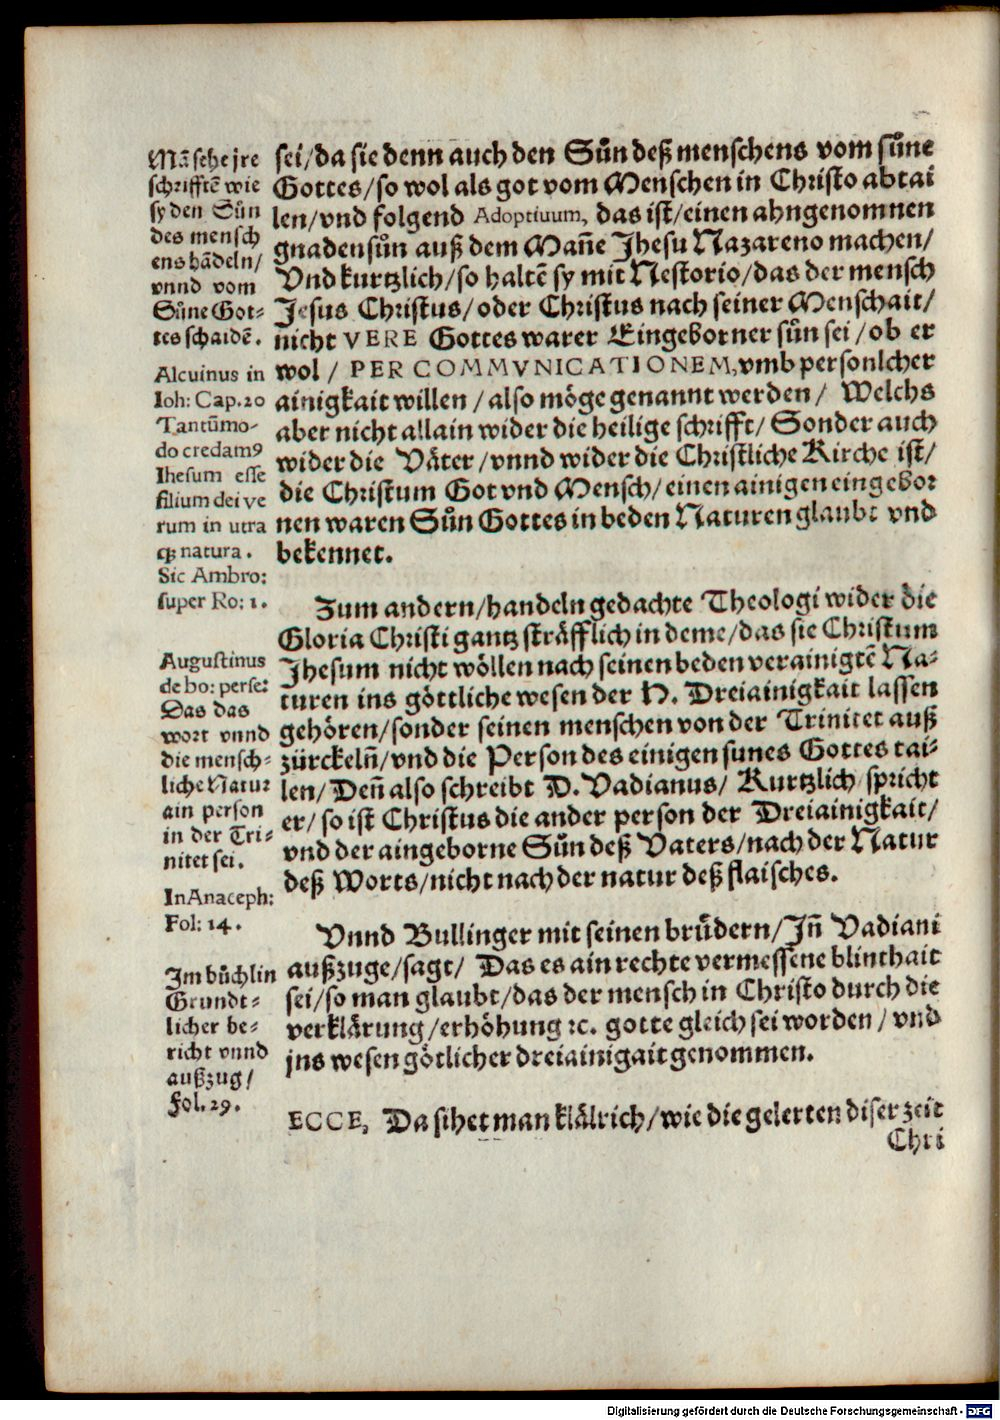 Mã sehe jre
schrifftẽ wie
sy den Sůn
des mensch
ens hãdeln/
vnnd vom
Sůne Got⸗
tes schaidẽ.
Alcuinus in
Ioh: Cap. 20
Tantũmo-
do credamꝯ
Ihesum esse
filium dei ve
rum in utra
qꝫ natura.
Sic Ambro:
super Ro: 1.
Augustinus
de bo: perse:
Das das
wort vnnd
die mensch⸗
liche Natur
ain person
in der Tri⸗
nitet sei.
In Anaceph:
Fol: 14.
Im bůchlin
Grundt⸗
licher be⸗
richt vnnd
außzug/
Fol. 29.
sei/da sie denn auch den Sůn deß menschens vom sůne
Gottes/so wol als got vom Menschen in Christo abtai
len/vnd folgend Adoptiuum, das ist/einen ahngenomnen
gnadensůn auß dem Mañe Jhesu Nazareno machen/
Vnd kurtzlich/so haltẽ sy mit Nestorio/das der mensch
Jesus Christus/oder Christus nach seiner Menschait/
nicht VERE Gottes warer Eingeborner sůn sei/ob er
wol / PER COMMVNICATIONEM, vmb personlcher
ainigkait willen / also möge genannt werden / Welchs
aber nicht allain wider die heilige schrifft/ Sonder auch
wider die Väter/vnnd wider die Christliche Kirche ist/
die Christum Got vnd Mensch/einen ainigen eingebor
nen waren Sůn Gottes in beden Naturen glaubt vnd
bekennet.
Zum andern/handeln gedachte Theologi wider die
Gloria Christi gantz sträfflich in deme/das sie Christum
Jhesum nicht wöllen nach seinen beden verainigtẽ Na⸗
turen ins göttliche wesen der H. Dreiainigkait lassen
gehören/sonder seinen menschen von der Trinitet auß
zürckeln̄/vnd die Person des einigen sunes Gottes tai⸗
len/ Deñ also schreibt D. Vadianus/ Kurtzlich spricht
er/so ist Christus die ander person der Dreiainigkait/
vnd der aingeborne Sůn deß Vaters/nach der Natur
deß Worts/nicht nach der natur deß flaisches.
Vnnd Bullinger mit seinen brůdern/Jñ Vadiani
außzuge/sagt/ Das es ain rechte vermessene blinthait
sei/so man glaubt/das der mensch in Christo durch die
verklärung/erhöhung ꝛc. gotte gleich sei worden/ vnd
jns wesen götlicher dreiainigait genommen.
ECCE, Da sihet man klälrich/wie die gelerten diser zeit
Chri
Digitalisierung gefördert durch die Deutsche Forschungsgemeinschaft - DFG